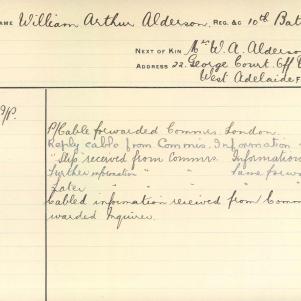 NAME William Arthur Alderson. REG. &C 10th Bat
NEXT OF KIN Mr W. A. Alderson
ADDRESS 22. George Court. Off
West Adelaide
P/Cable forwarded Commrs. London.
Reply cable from Commrs. Information
" Slip received from Commrs Informations
Further information " " same forw
Later " " "
Cabled information received from Comm
warded Inquirer.